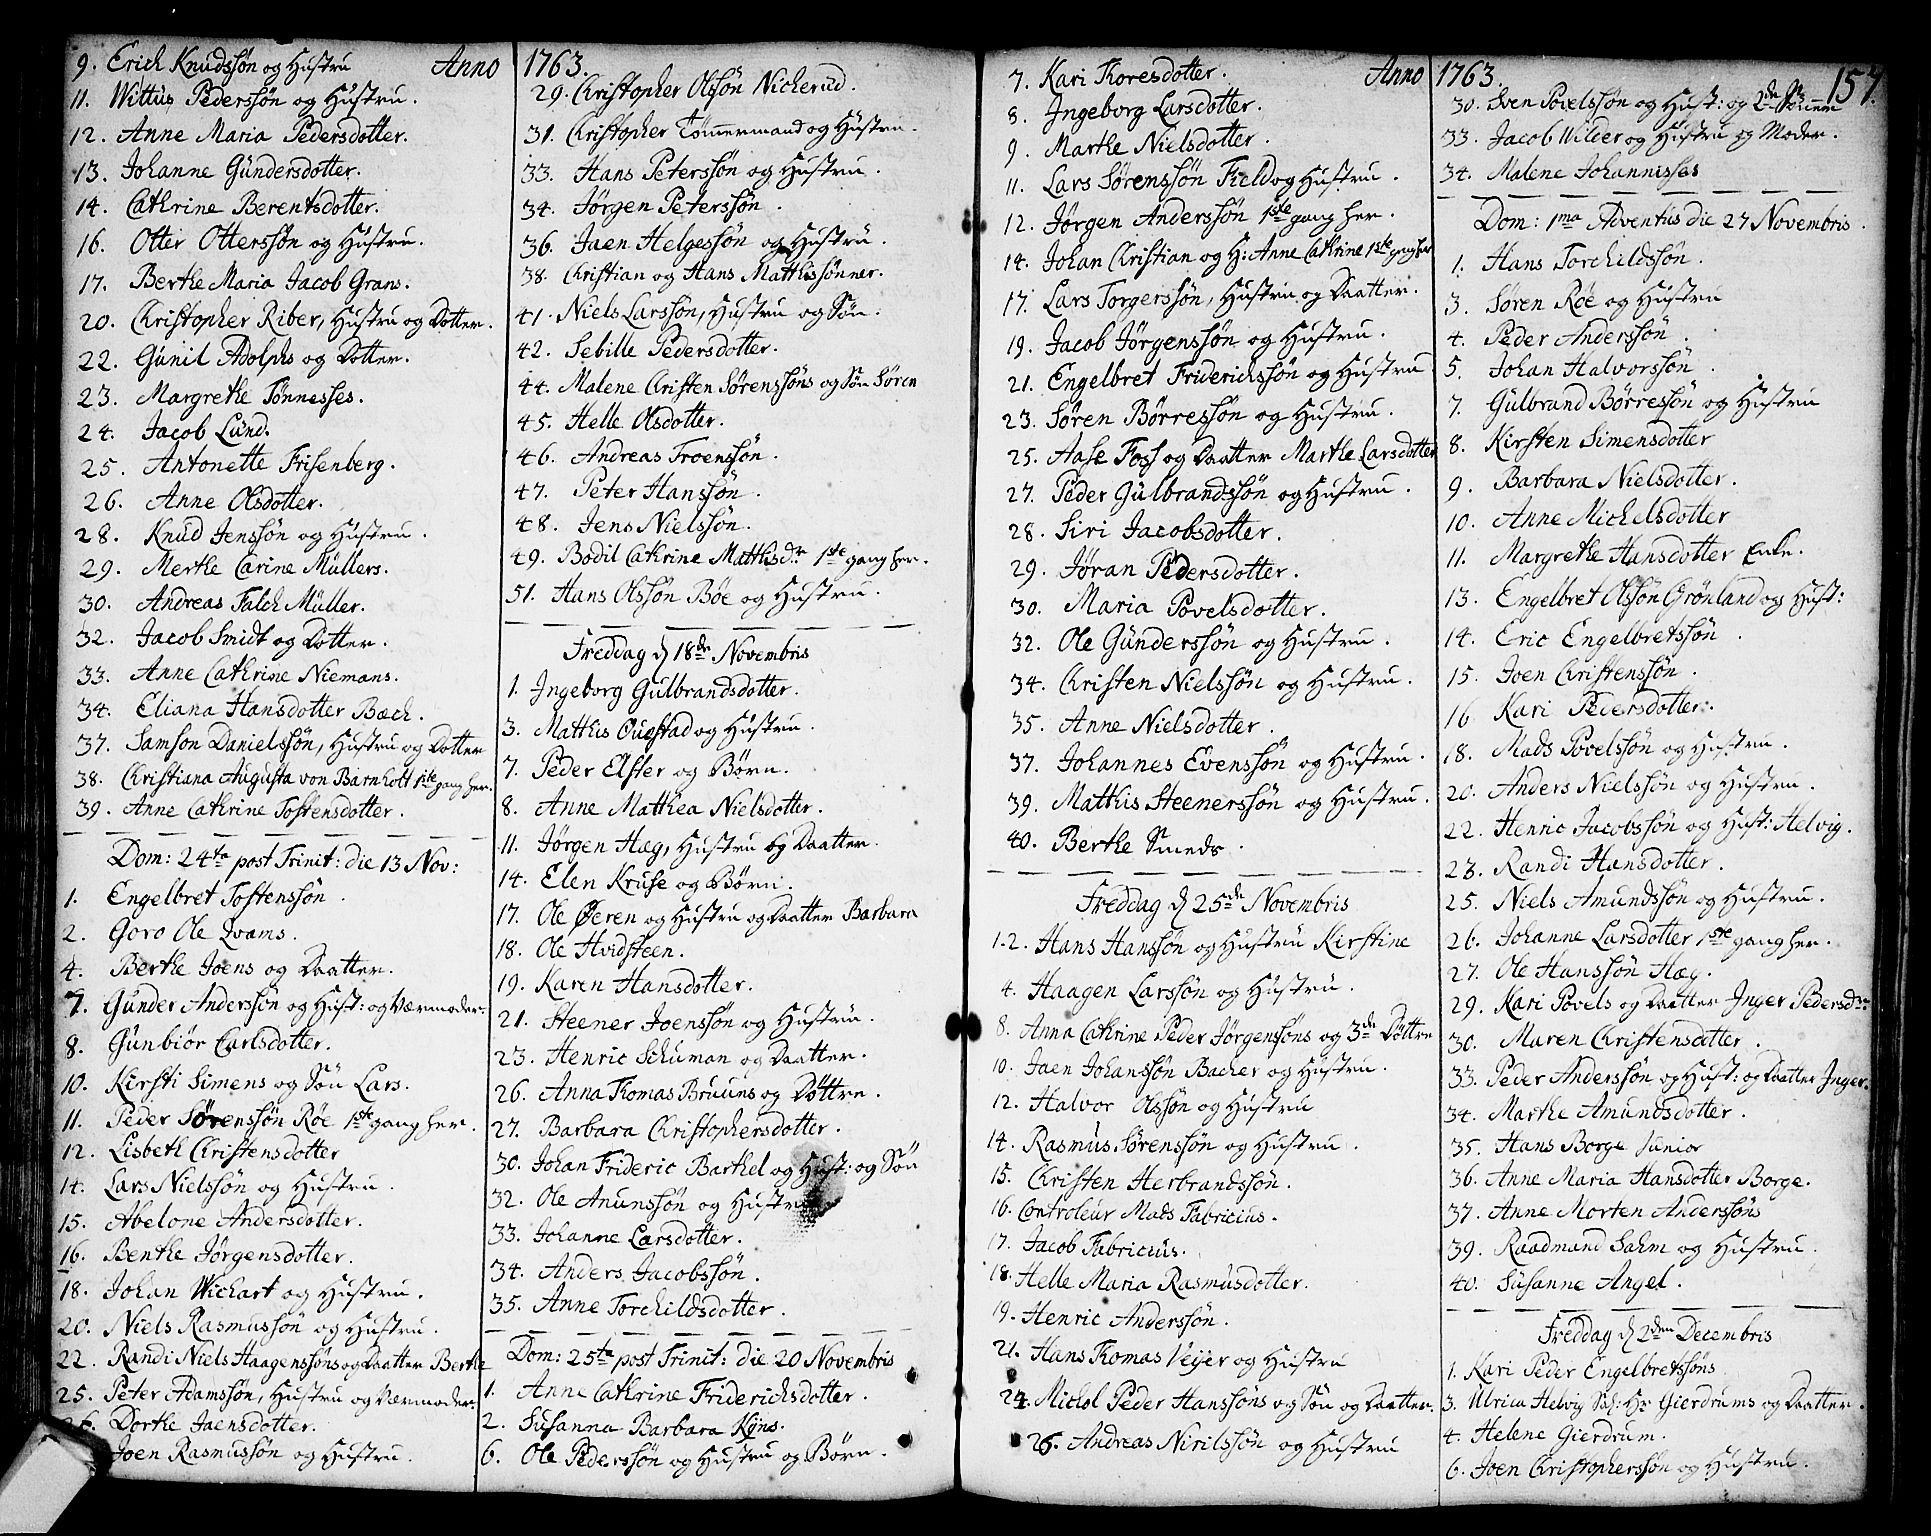 Anno 1763.
9. Erich Knudssøn og Hustru
11. Wittus Pederssøn og Hustru.
12. Anne Maria Pedersdotter.
13. Johanne Gundersdotter.
14. Cathrine Berentsdotter.
16. Otter Otterssøn og Hustru.
17. Berthe Maria Jacob Grans.
20. Christopher Riber, Hustru og Dotter.
22. Gunil Adolphs og Dotter.
23. Margrethe Tønnesses.
24. Jacob Lund.
25. Antonette Frisenberg.
26. Anne Olsdotter.
28. Knud Jenssøn og Hustru.
29. Merthe Carine Müllers.
30. Andreas Falch Müller.
32. Jacob Smidt og Dotter.
33. Anne Cathrine Niemans.
34. Eliana Hansdotter Bæch.
37. Samson Danielssøn, Hustru og Dotter
38. Christiana Augusta von Barnholt 1ste gang her.
39. Anne Cathrine Tostensdotter.
Dom: 24ta post Trinit: die 13 Nov:
1. Engelbret Tostenssøn.
2. Goro Ole Qvams.
4. Berthe Joens og Daatter.
7. Gunder Anderssøn og Hust: og Værmoder.
8. Gunbiør Carlsdotter.
10. Kirsti Simens og Søn Lars.
11. Peder Sørenssøn Røe 1ste gang her.
12. Lisbeth Christensdotter
14. Lars Nielssøn og Hustru.
15. Abelone Andersdotter.
16. Benthe Jørgensdotter.
18. Johan Wichart og Hustru.
20. Niels Rasmussøn og Hustru.
22. Randi Niels Haagenssøns og Daatter Berthe
25. Peter Adamssøn, Hustru og Værmoder.
26. Dorthe Jaensdotter.
Joen Rasmussøn og Hustru.
29. Christopher Olssøn Nicherud.
31. Christopher Tømmermand og Hustru.
33. Hans Peterssøn og Hustru.
34. Jørgen Peterssøn.
36. Jaen Helgessøn og Hustru.
38. Christian og Hans Matthissønner.
41. Niels Larssøn, Hustru og Søn.
42. Sebille Pedersdotter.
44. Malene Christen Sørenssøns og Søn Søren
45. Helle Olsdotter.
46. Andreas Troenssøn.
47. Peter Hanssøn.
48. Jens Nielssøn.
49. Bodil Cathrine Matthisdr 1ste gang her.
51. Hans Olssøn Bøe og Hustru.
Freddag d 18de Novembris
1. Ingeborg Gulbrandsdotter.
3. Matthis Quæstad og Hustru.
7. Peder Elster og Børn.
8. Anne Mathea Nielsdotter.
11. Jørgen Hæg, Hustru og Daatter.
14. Elen Kruse og Børn.
17. Ole Øeren og Hustru og Daatter Barbara
18. Ole Hvidsteen.
19. Karen Hansdotter.
21. Steener Joenssøn og Hustru.
23. Henric Schuman og Daatter.
26. Anna Thomas Bruuns og Døttre.
27. Barbara Christophersdotter.
30. Johan Frideric Barthel og Hust: og Søn
32. Ole Anunssøn og Hustru
33. Johanne Larsdotter.
34. Anders Jacobssøn.
35. Anne Torchildsdotter.
Dom: 25ta post Trinit: die 20 Novembris
1. Anne Cathrine Friderichsdotter.
2. Susanna Barbara Kyns.
6. Ole Pederssøn og Hustru og Børn.
Anno 1763. 157.
7. Kari Thoresdotter.
8. Ingeborg Larsdotter.
9. Marthe Nielsdotter.
11. Lars Sørenssøn Field og Hustru.
12. Jørgen Anderssøn 1ste gang her.
14. Johan Christian og H: Anne Cathrine 1ste gang her
17. Lars Torgerssøn, Hustru og Daatter.
19. Jacob Jørgenssøn og Hustru.
21. Engelbret Friderichssøn og Hustru
23. Søren Børressøn og Hustru.
25. Aase Foss og Daatter Marthe Larsdotter
27. Peder Gulbrandssøn og Hustru.
28. Siri Jacobsdotter.
29. Jøran Pedersdotter.
30. Maria Povelsdotter.
32. Ole Gunderssøn og Hustru.
34. Christen Nielssøn og Hustru.
35. Anne Nielsdotter.
37. Johannes Evenssøn og Hustru.
39. Matthis Steenerssøn og Hustru.
40. Berthe Smeds.
Freddag d 25de Novembris
1.2. Hans Hanssøn og Hustru Kirstine
4. Haagen Larssøn og Hustru.
8. Anna Cathrine Peder Jørgenssøns og 3de Døttre
10. Jaen Johanssøn Bacher og Hustru.
12. Halvor Olssøn og Hustru
14. Rasmus Sørenssøn og Hustru.
15. Christen Herbrandssøn.
16. Controleur Mads Fabricius.
17. Jacob Fabricius.
18. Helle Maria Rasmusdotter.
19. Henric Anderssøn.
21. Hans Thomas Veyer og Hustru
24. Michel Peder Hanssøns og Søn og Daatter.
26. Andreas Nirilssøn og Hustru
30. Sven Povelssøn og Hust: og 2de
33. Jacob Wilder og Hustru og Moder.
34. Malene Johannisses
Dom: 1ma Adventus die 27 Novembris.
1. Hans Torchildssøn.
3. Søren Røe og Hustru
4. Peder Anderssøn.
5. Johan Halvorssøn.
7. Gulbrand Børressøn og Hustru
8. Kirsten Simensdotter
9. Barbara Nielsdotter.
10. Anne Michelsdotter
11. Margrethe Hansdotter Enke.
13. Engelbret Olssøn Grønland og Hust:
14. Eric Engelbretssøn.
15. Joen Christenssøn.
16 Kari Pedersdotter.
18. Mads Povelssøn og Hustru.
20. Anders Nielssøn og Hustru.
22. Henric Jacobssøn og Hust: Helvig.
23. Randi Hansdotter.
25. Niels Amundssøn og Hustru.
26. Johanne Larsdotter 1ste gang her.
27. Ole Hanssøn Hæg.
29. Kari Povels og Daatter Inger Pedersdr.
30. Maren Christensdtter.
33. Peder Anderssøn og Hust: og Daatter Inger.
34. Marthe Amundsdotter.
35. Hans Borge Junior
36. Anne Maria Hansdotter Borge.
37. Anne Morten Anderssøns
39. Raadmand Sahm og Hustru.
40. Susanne Angel.
Freddag d 2den Decembris
1. Kari Peder Engelbretssøns
3. Ulrica Helvig Sal: Hr Gierdrums og Daatter.
4. Helene Gierdrum.
6. Joen Christopherssøn og Hustru.